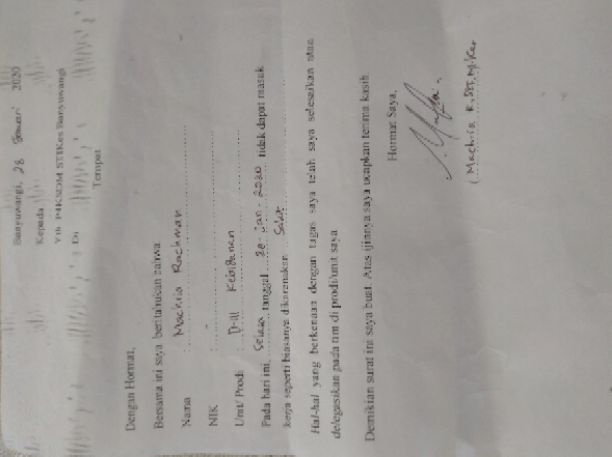 Banyuwangi, 28 Januari 2020
Kepada
Yth P4KSDM STIKes Banyuwangi
Di
Tempat
Dengan Hormat,
Bersama ini saya beritahukan bahwa
Nama : Machria Rachman
NIK : -
Unit/ Prodi : D-III Kebidanan
Pada hari ini, Selasa tanggal 28 - Jan - 2020 tidak dapat masuk
kerja seperti biasanya dikarenakan
Hal-hal yang berkenaan dengan tugas saya telah saya selesaikan atau
delegasikan pada tim di prodi/unit saya
Demikian surat ini saya buat. Atas ijinnya saya ucapkan terima kasih
Hormat Saya,
( Machria R.